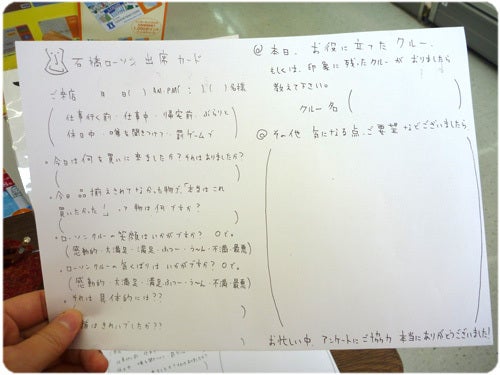 石橋ローソン 出席カード
ご来店 月 日( ) AM・PM( : )( )名様
仕事行く前・仕事中・帰宅前・ぶらりと
休日中・噂を聞きつけて・罰ゲームで
・今日は何を買いに来ましたか?それはありましたか?
・今日品揃えされてなかった物で、「本当はこれ
買いたかった!」って物は何ですか?
・ローソンクルーの笑顔はいかがですか? ○で。
(感動的・大満足・満足・ふつー・う〜ん・不満・最悪)
・ローソンクルーの気くばりはいかがですか? ○で。
(感動的・大満足・満足・ふつー・う〜ん・不満・最悪)
・それは具体的には??
はきれいでしたか??
◎本日、お役に立ったクルー、
もしくは、印象に残ったクルーがおりましたら
教えて下さい。
クルー名( )
◎その他 気になる点、ご要望などございましたら
お忙しい中、アンケートにご協力 本当にありがとうございました!